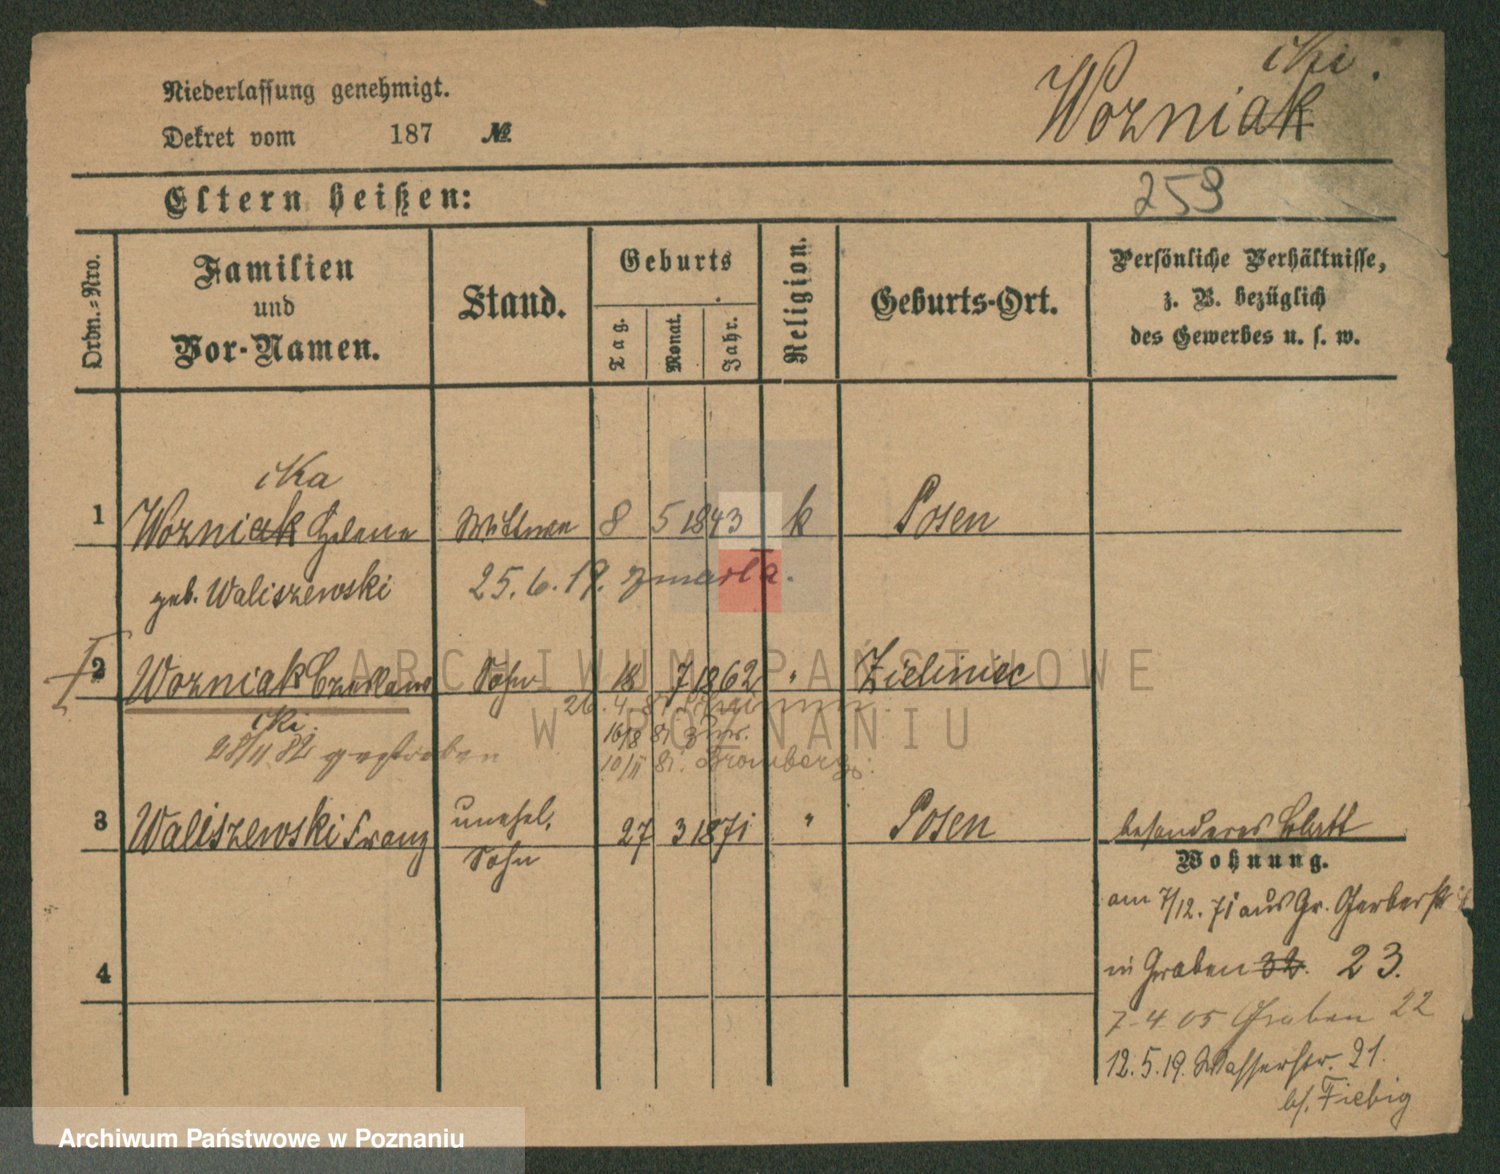 Niederlassung genehmigt.
Dekret vom 187 №
icki.
Wozniak
Eltern heißen:
259
Ordn.-Nro.
Familien
und
Vor-Namen.
Stand.
Geburts
Tag.
Monat.
Jahr.
Religion.
Geburts-Ort.
Persönliche Verhältnisse,
z. B. bezüglich
des Gewerbes u. s. w.
icka
1 Wozniak Helena Wittwe 8 5 1843 k Posen
geb. Waliszewski 25.6.19. zmarła.
2 Wozniak Czeslaus Sohn 18 7 1862 " Zieliniec
icki.
26.4.81
28/11 82 gestorben
16/8 81
10/11 81. Bromberg.
3 Waliszewski Franz unehel. Sohn 27 3 1871 " Posen
besonderes Blatt
Wohnung.
am 7/12.71 aus Gr. Gerberstr
in Graben 32. 23.
7-4 05 Graben 22
12.5.19. Wasserstr. 21.
b/. Fiebig
4
ARCHIWUM PAŃSTWOWE
W POZNANIU
Archiwum Państwowe w Poznaniu